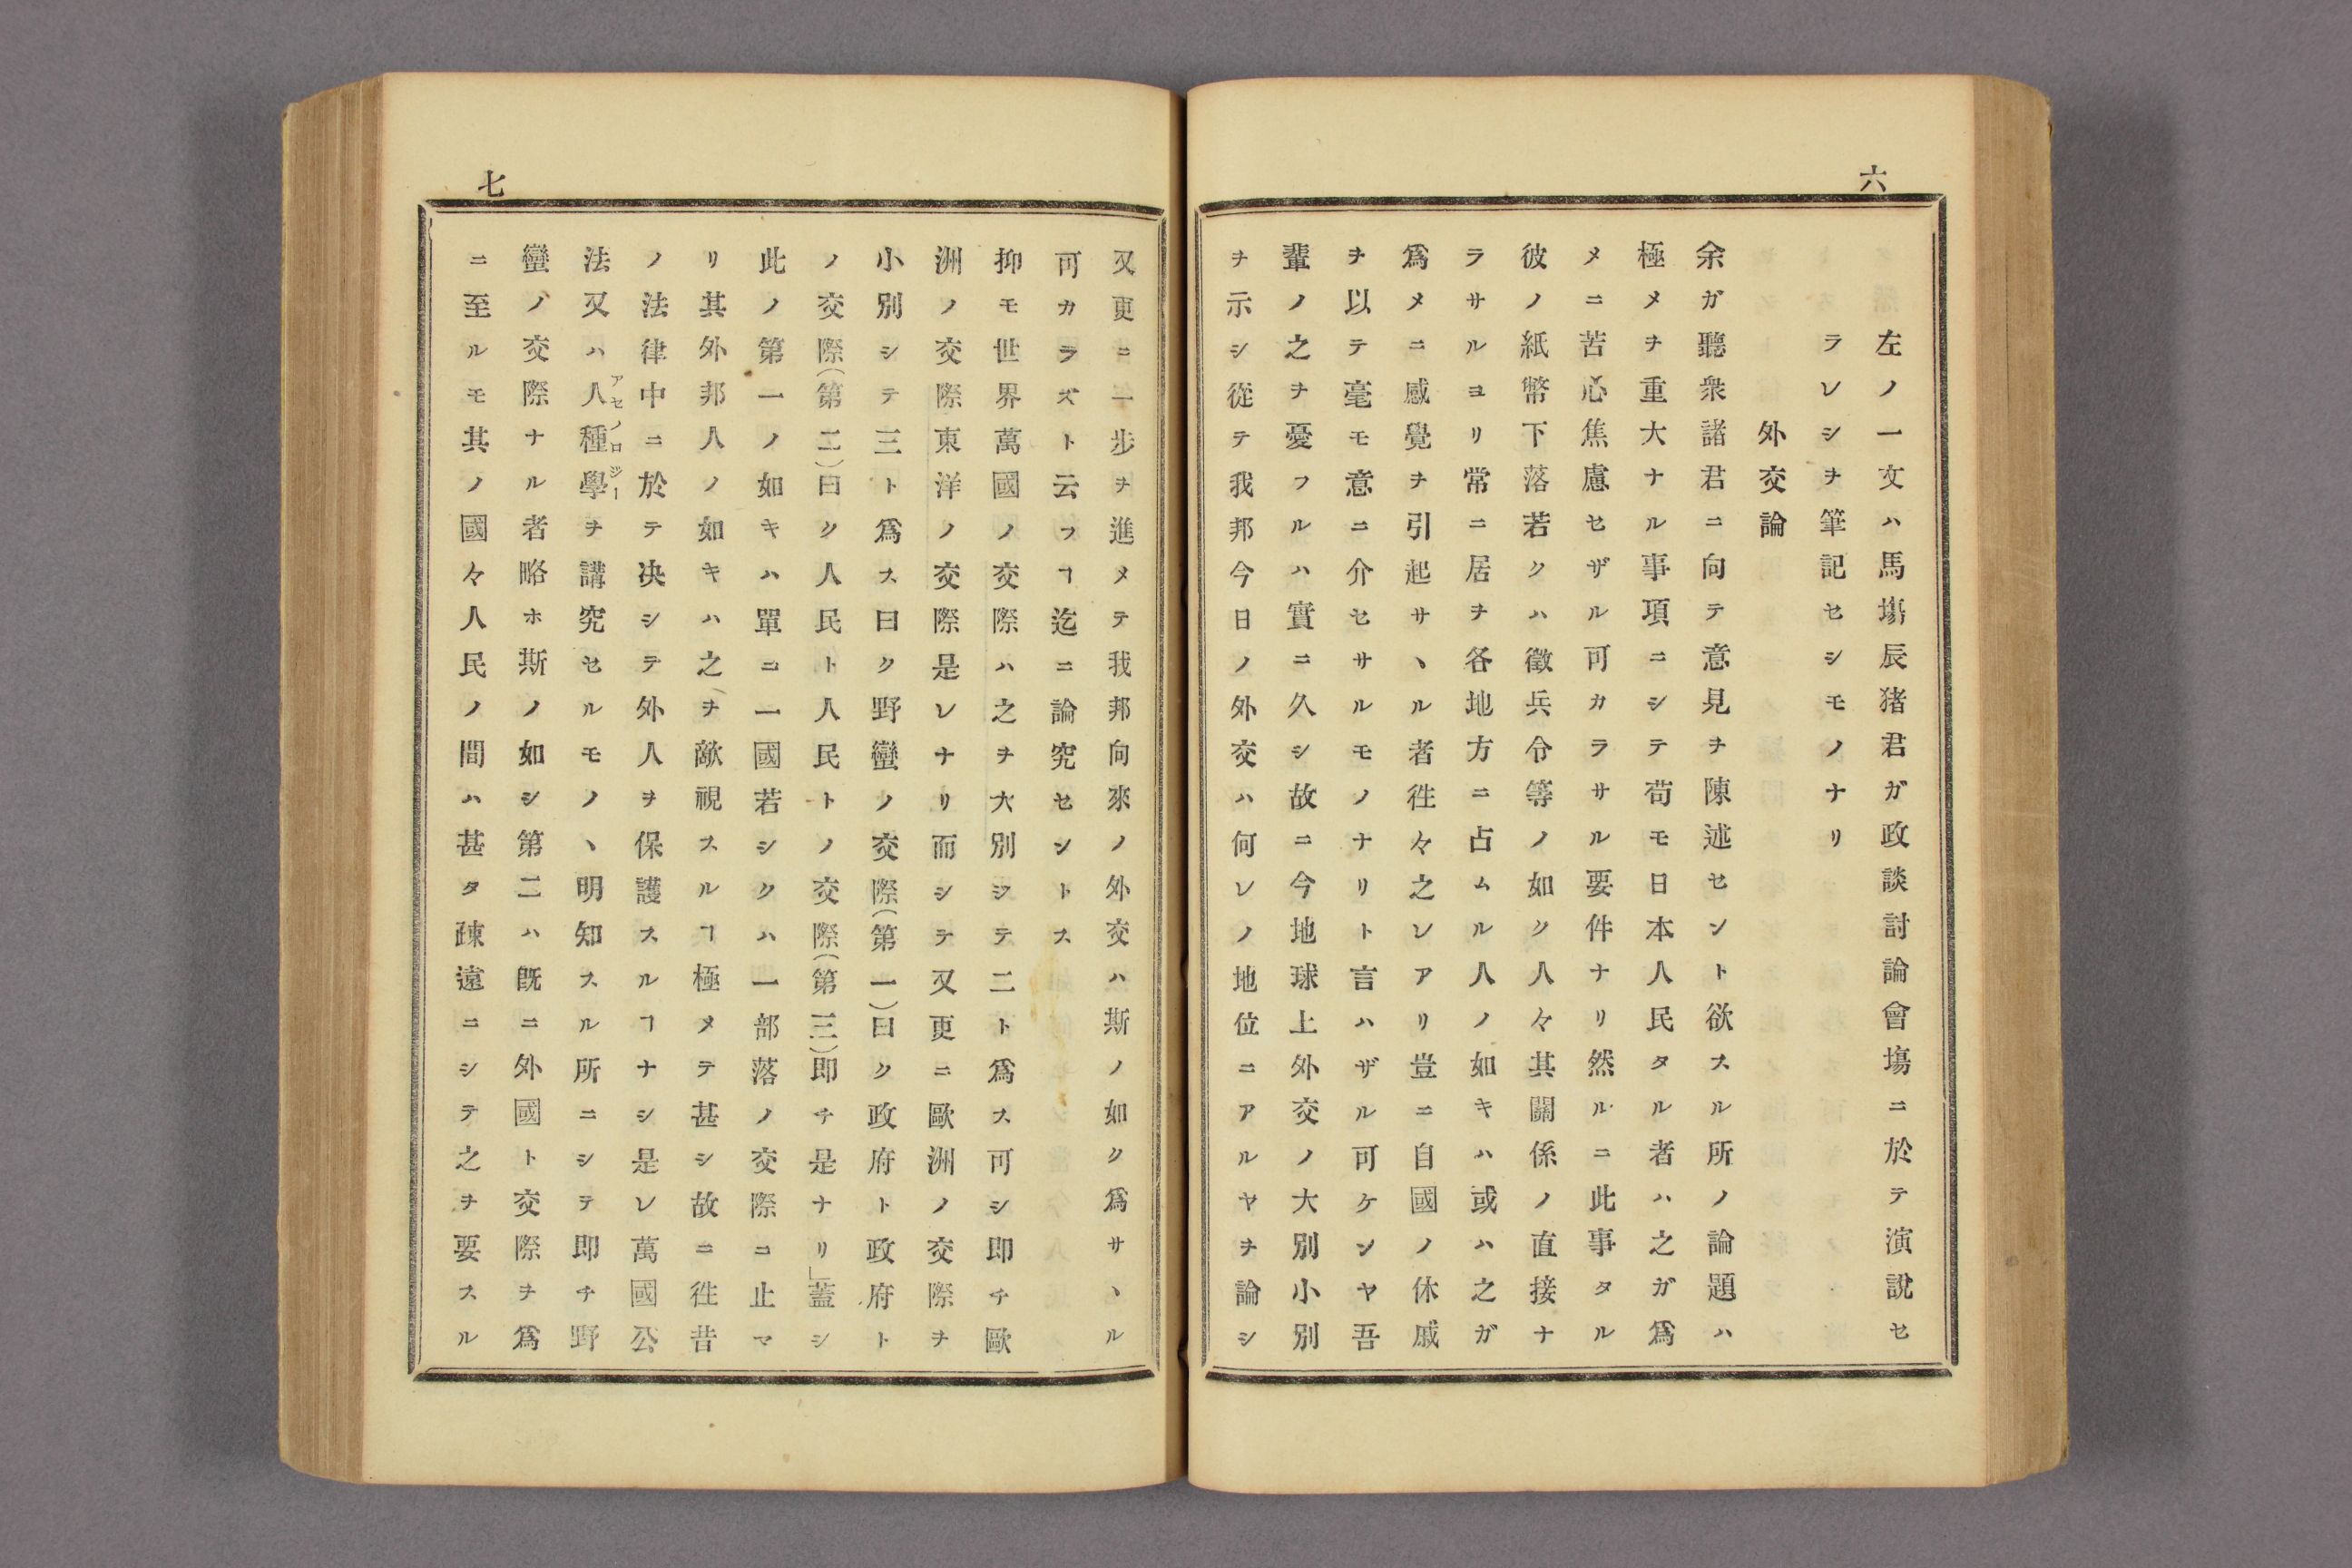 六
左ノ一文ハ馬塲辰猪君ガ政談討論會塲ニ於テ演說セ
ラレシヲ筆記セシモノナリ
外交論
余ガ聽衆諸君ニ向テ意見ヲ陳述セント欲スル所ノ論題ハ
極メヲ重大ナル事項ニシテ苟モ日本人民タル者ハ之ガ爲
メニ苦心焦慮セザル可カラサル要件ナリ然ルニ此事タル
彼ノ紙幣下落若クハ徵兵令等ノ如ク人々其關係ノ直接ナ
ラサルヨリ常ニ居ヲ各地方ニ占ムル人ノ如キハ或ハ之ガ
爲メニ感覺ヲ引起サヽル者徃々之レアリ豈ニ自國ノ休戚
ヲ以テ毫モ意ニ介セサルモノナリト言ハザル可ケンヤ吾
輩ノ之ヲ憂フルハ實ニ久シ故ニ今地球上外交ノ大別小別
ヲ示シ從テ我邦今日ノ外交ハ何レノ地位ニアルヤヲ論シ
七
又更ニ一步ヲ進メテ我邦向來ノ外交ハ斯ノ如ク爲サヽル
可カラズト云フヿ迄ニ論究セシトス
抑モ世界萬國ノ交際ハ之ヲ大別シテ二ト爲ス可シ即チ歐
洲ノ交際東洋ノ交際是レナリ而シテ又更ニ歐洲ノ交際ヲ
小別シテ三ト爲ス曰ク野蠻ノ交際(第一)曰ク政府ト政府ト
ノ交際(第二)曰ク人民ト人民トノ交際(第三)即チ是ナリ」蓋シ
此ノ第一ノ如キハ單ニ一國若シクハ一部落ノ交際ニ止マ
リ其外邦人ノ如キハ之ヲ敵視スルヿ極メテ甚シ故ニ徃昔
ノ法律中ニ於テ决シテ外人ヲ保護スルヿナシ是レ萬國公
法又ハ人種學ヲ講究セルモノヽ明知スル所ニシテ即チ野
アセノロジー
蠻ノ交際ナル者略ホ斯ノ如シ第二ハ旣ニ外國ト交際ヲ爲
ニ至ルモ其ノ國々人民ノ間ハ甚タ疎遠ニシテ之ヲ要スル